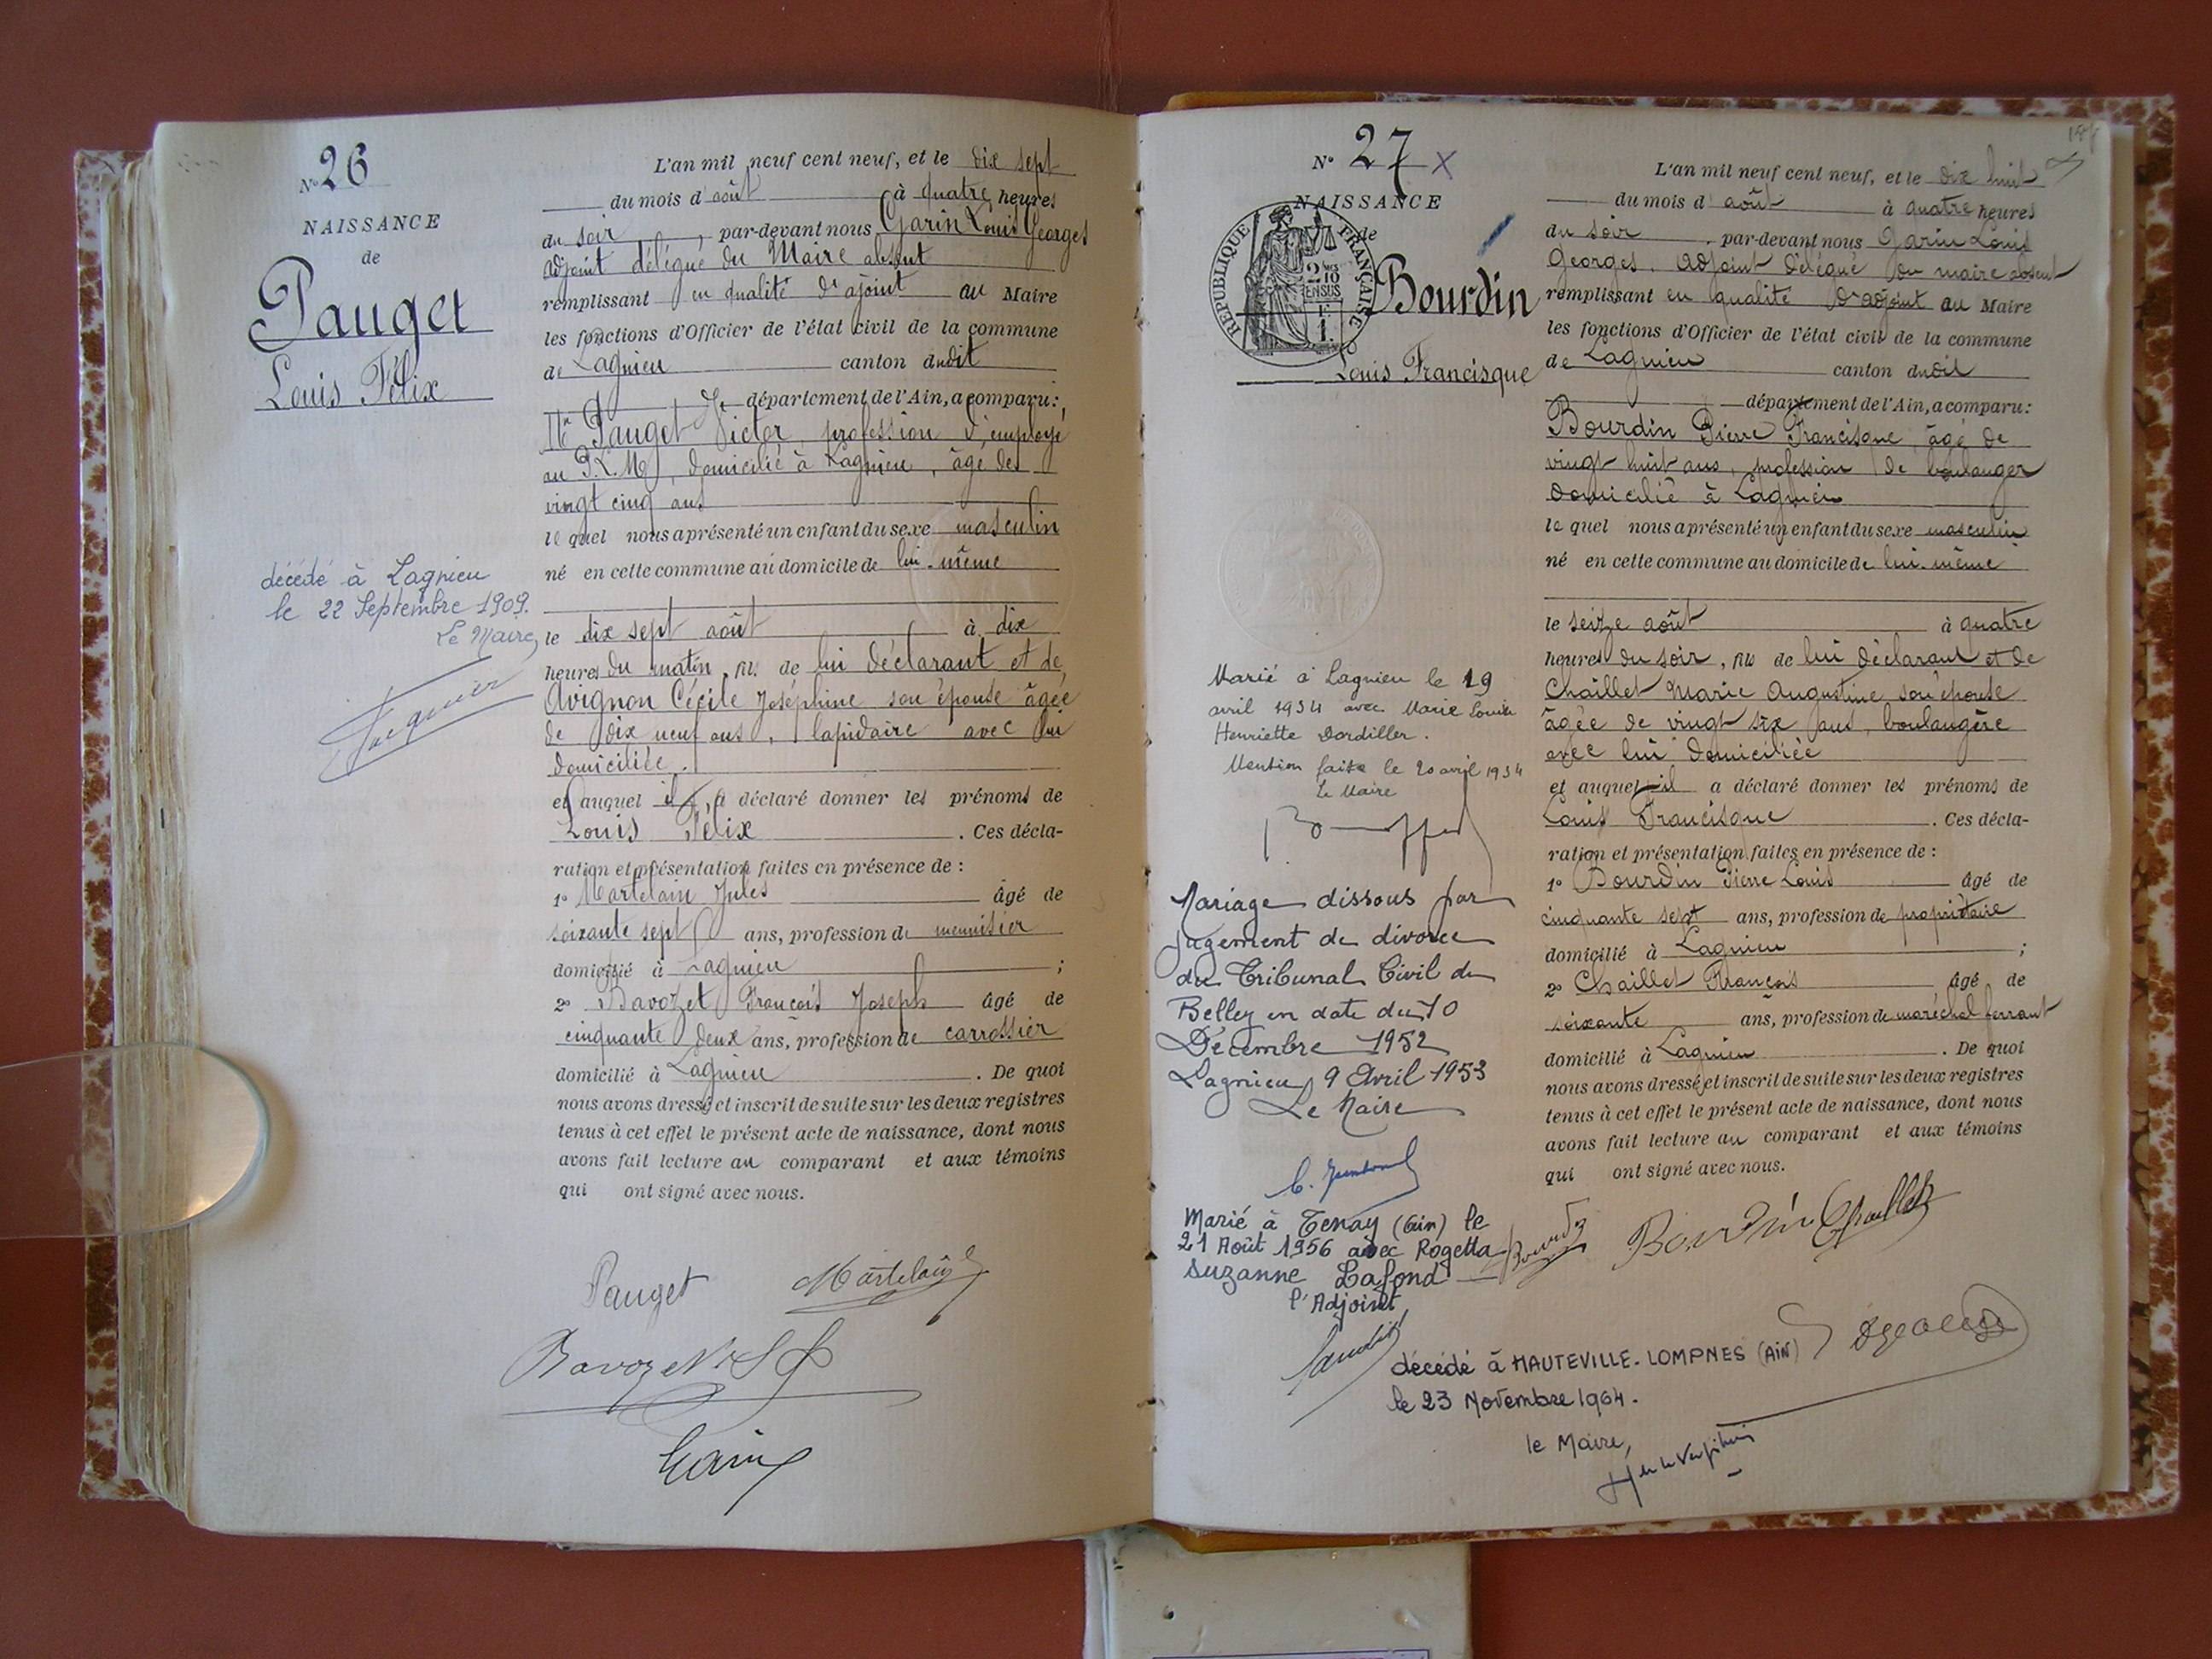 N° 26
NAISSANCE
de
Pauget
Louis Félix
décédé à Lagnieu
le 22 Septembre 1909.
Le Maire,
L'an mil neuf cent neuf, et le dix sept
du mois d'août à quatre heures
du soir, par-devant nous Garin Louis Georges
adjoint délégué du Maire absent
remplissant en qualité d'ajoint au Maire
les fonctions d'Officier de l'état civil de la commune
de Lagnieu canton dudit
département de l'Ain, a comparu:
Pauget Victor, profession d'employé
au P.L.M, domicilié à Lagnieu, âgé de
vingt cinq ans
lequel nous a présenté un enfant du sexe masculin
né en cette commune au domicile de lui-même
le dix sept août à dix
heures du matin, fils de lui déclarant et de
Avignon Cécile Joséphine son épouse âgée
de dix neuf ans, lapidaire avec lui
domiciliée.
et auquel il a déclaré donner les prénoms de
Louis Félix. Ces décla-
ration et présentation faites en présence de :
1° Martelain Jules âgé de
soixante sept ans, profession de menuisier
domicilié à Lagnieu ;
2° Bavozet François Joseph âgé de
cinquante deux ans, profession de carrossier
domicilié à Lagnieu. De quoi
nous avons dressé et inscrit de suite sur les deux registres
tenus à cet effet le présent acte de naissance, dont nous
avons fait lecture au comparant et aux témoins
qui ont signé avec nous.
Pauget Martelain
Bavozet
Garin
N° 27 X
NAISSANCE
de
RÉPUBLIQUE FRANÇAISE
Bourdin
Louis Francisque
Marié à Lagnieu le 19
avril 1934 avec Marie Louise
Henriette Dordiller.
Mention faite le 20 avril 1934
Le Maire
Mariage dissous par
jugement de divorce
du Tribunal Civil de
Belley en date du 10
Décembre 1952
Lagnieu 9 Avril 1953
Le Maire
Marié à Tenay (Ain) le
21 Août 1956 avec Rogetta
Suzanne Lafond
l'Adjoint
L'an mil neuf cent neuf, et le dix huit
du mois d'août à quatre heures
du soir, par-devant nous Garin Louis
Georges, adjoint délégué du maire absent
remplissant en qualité d'adjoint au Maire
les fonctions d'Officier de l'état civil de la commune
de Lagnieu canton dudit
département de l'Ain, a comparu:
Bourdin Pierre Francisque, âgé de
vingt huit ans, profession de boulanger
domicilié à Lagnieu
lequel nous a présenté un enfant du sexe masculin
né en cette commune au domicile de lui-même
le seize août à quatre
heures du soir, fils de lui déclarant et de
Chaillet Marie Augustine son épouse
âgée de vingt six ans, boulangère
avec lui domiciliée
et auquel il a déclaré donner les prénoms de
Louis Francisque. Ces décla-
ration et présentation faites en présence de :
1° Bourdin Pierre Louis âgé de
cinquante sept ans, profession de propriétaire
domicilié à Lagnieu ;
2° Chaillet François âgé de
soixante ans, profession de maréchal ferrant
domicilié à Lagnieu. De quoi
nous avons dressé et inscrit de suite sur les deux registres
tenus à cet effet le présent acte de naissance, dont nous
avons fait lecture au comparant et aux témoins
qui ont signé avec nous.
Bourdin Chaillet
décédé à HAUTEVILLE-LOMPNES (AIN)
le 23 Novembre 1964.
le Maire,